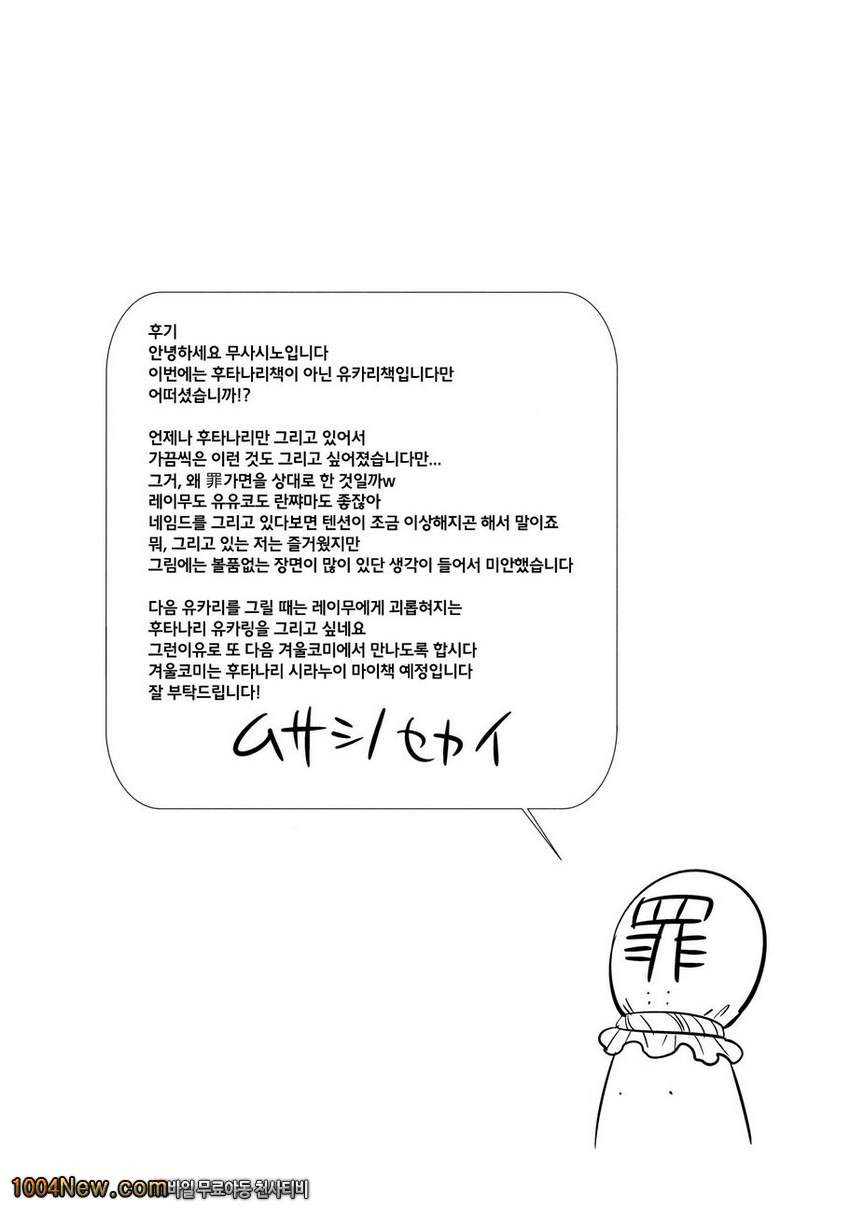 후기
안녕하세요 무사시노입니다
이번에는 후타나리책이 아닌 유카리책입니다만
어떠셨습니까!?
언제나 후타나리만 그리고 있어서
가끔씩은 이런 것도 그리고 싶어졌습니다만...
그거, 왜 罪가면을 상대로 한 것일까w
레이무도 유유코도 란쨔마도 좋잖아
네임드를 그리고 있다보면 텐션이 조금 이상해지곤 해서 말이죠
뭐, 그리고 있는 저는 즐거웠지만
그림에는 볼품없는 장면이 많이 있단 생각이 들어서 미안했습니다
다음 유카리를 그릴 때는 레이무에게 괴롭혀지는
후타나리 유카링을 그리고 싶네요
그런이유로 또 다음 겨울코미에서 만나도록 합시다
겨울코미는 후타나리 시라누이 마이책 예정입니다
잘 부탁드립니다!
ムサシノセカイ
罪
1004New.com 바일 무료야동 천사티비